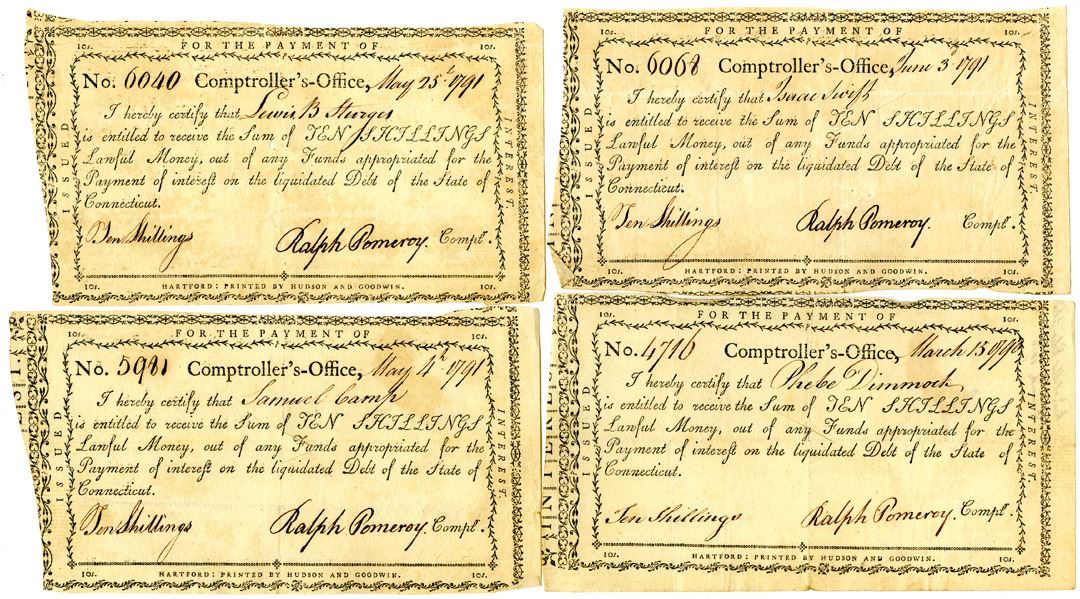 10s. FOR THE PAYMENT OF 10s.
No. 6040 Comptroller's-Office, May 25th 1791
I hereby certify that Lewis B Sturges
is entitled to receive the Sum of TEN SHILLINGS
Lawful Money, out of any Funds appropriated for the
Payment of interest on the liquidated Debt of the State of
Connecticut.
Ten Shillings Ralph Pomeroy. Compt.
10s. HARTFORD: PRINTED BY HUDSON AND GOODWIN. 10s.
ISSUED
INTEREST.
10s. FOR THE PAYMENT OF 10s.
No. 6068 Comptroller's-Office, June 3 1791
I hereby certify that Isaac Swift
is entitled to receive the Sum of TEN SHILLINGS
Lawful Money, out of any Funds appropriated for the
Payment of interest on the liquidated Debt of the State of
Connecticut.
Ten Shillings Ralph Pomeroy. Compt.
10s. HARTFORD: PRINTED BY HUDSON AND GOODWIN. 10s.
ISSUED
INTEREST.
10s. FOR THE PAYMENT OF 10s.
No. 5981 Comptroller's-Office, May 4th 1791
I hereby certify that Samuel Camp
is entitled to receive the Sum of TEN SHILLINGS
Lawful Money, out of any Funds appropriated for the
Payment of interest on the liquidated Debt of the State of
Connecticut.
Ten Shillings Ralph Pomeroy. Compt.
10s. HARTFORD: PRINTED BY HUDSON AND GOODWIN. 10s.
ISSUED
INTEREST.
10s. FOR THE PAYMENT OF 10s.
No. 4716 Comptroller's-Office, March 15 1790
I hereby certify that Phebe Dimmock
is entitled to receive the Sum of TEN SHILLINGS
Lawful Money, out of any Funds appropriated for the
Payment of interest on the liquidated Debt of the State of
Connecticut.
Ten Shillings Ralph Pomeroy. Compt.
10s. HARTFORD: PRINTED BY HUDSON AND GOODWIN. 10s.
ISSUED
INTEREST.